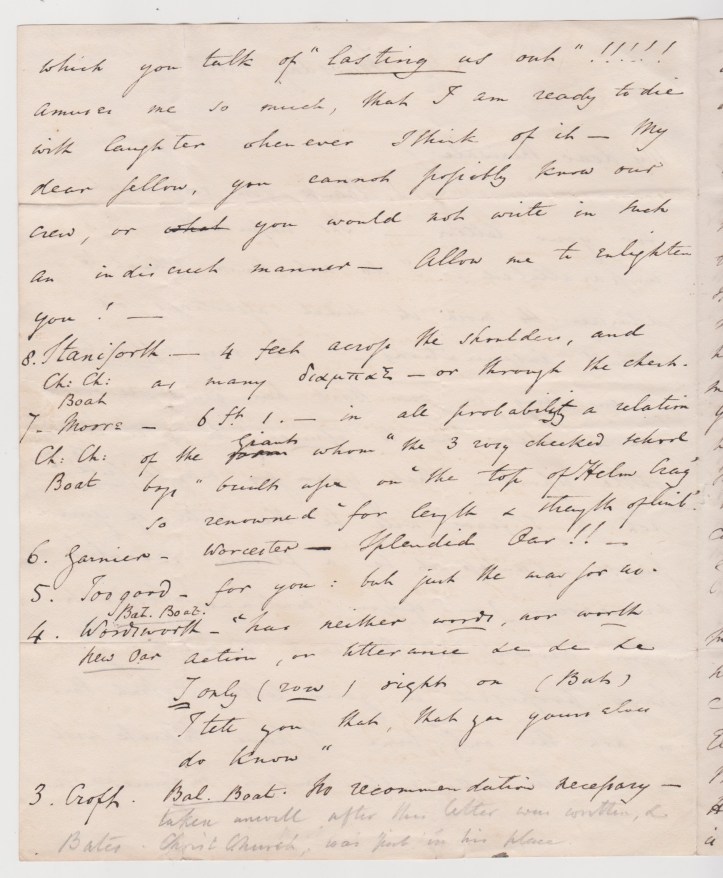 which you talk of "lasting us out"!!!!!
amuses me so much, that I am ready to die
with laughter whenever I think of it — My
dear fellow, you cannot poſsibly know our
crew, or what you would not write in such
an indiscreet manner — Allow me to enlighten
you! —
8. Staniforth — 4 feet acroſs the shoulders, and
Ch: Ch: as many διαμπαξ — or through the chest.
Boat
7 - Moore — 6 ft 1. — in all probability a relation
Giants
Ch: Ch: of the whom "the 3 rosy cheeked school
Boat boys" built upon "the top of Helm Crag"
so renowned "for length & strength of limb".
6. Garnier — Worcester — Splendid Oar!! —
5. Toogood — for you: but just the man for us.
Bal. Boat.
4. Wordsworth — "has neither words, nor worth
New Oar action, or utterance &c &c &c
I only (row) right on (But)
I tell you that, that you yourselves
do know"
3. Croft. Bal. Boat. No recommendation neceſsary —
taken unwell after this letter was written, &
Bates - Christ Church, was put in his place